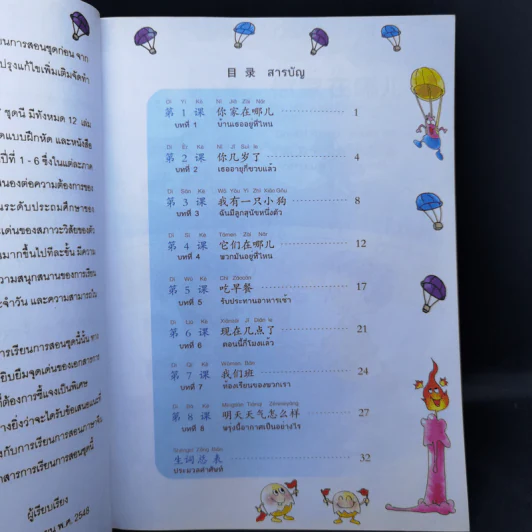 ยนการสอนชุดก่อน จาก
ปรุงแก้ไขเพิ่มเติมจัดทำ
ชุดนี้ มีทั้งหมด 12 เล่ม
ดแบบฝึกหัด และหนังสือ
ปีที่ 1 - 6 ซึ่งในแต่ละภาค
นองต่อความต้องการของ
นระดับประถมศึกษาของ
เด่นของสภาวะวิสัยของตัว
มากขึ้นไปทีละขั้น มีความ
วามสนุกสนานของการเรียน
ะจำวัน และความสามารถใน
ารเรียนการสอนชุดนี้นั้น ทาง
ยิบยืมจุดเด่นของเอกสารการ
ที่ต้องการชี้แจงเป็นพิเศษ
างยิ่งว่าจะได้รับข้อเสนอแนะที่
งกับการเรียนการสอนภาษาจีน
กสารการเรียนการสอนชุดนี้
ผู้เรียบเรียง
พ.ศ. 2548
目 录 สารบัญ
Dì Yī Kè Nǐ Jiā Zài Nǎr
第 1 课 你家在哪儿 1
บทที่ 1 บ้านเธออยู่ที่ไหน
Dì Èr Kè Nǐ Jǐ Suì le
第 2 课 你几岁了 4
บทที่ 2 เธออายุกี่ขวบแล้ว
Dì Sān Kè Wǒ Yǒu Yì Zhī Xiǎo Gǒu
第 3 课 我有一只小狗 8
บทที่ 3 ฉันมีลูกสุนัขหนึ่งตัว
Dì Sì Kè Tāmen Zài Nǎr
第 4 课 它们在哪儿 12
บทที่ 4 พวกมันอยู่ที่ไหน
Dì Wǔ Kè Chī Zǎocān
第 5 课 吃早餐 17
บทที่ 5 รับประทานอาหารเช้า
Dì Liù Kè Xiànzài Jǐ Diǎn le
第 6 课 现在几点了 21
บทที่ 6 ตอนนี้กี่โมงแล้ว
Dì Qī Kè Wǒmen Bān
第 7 课 我们班 24
บทที่ 7 ห้องเรียนของพวกเรา
Dì Bā Kè Míngtiān Tiānqì Zěnmeyàng
第 8 课 明天天气怎么样 27
บทที่ 8 พรุ่งนี้อากาศเป็นอย่างไร
Shēngcí Zǒng Biǎo
生词总表 32
ประมวลคำศัพท์